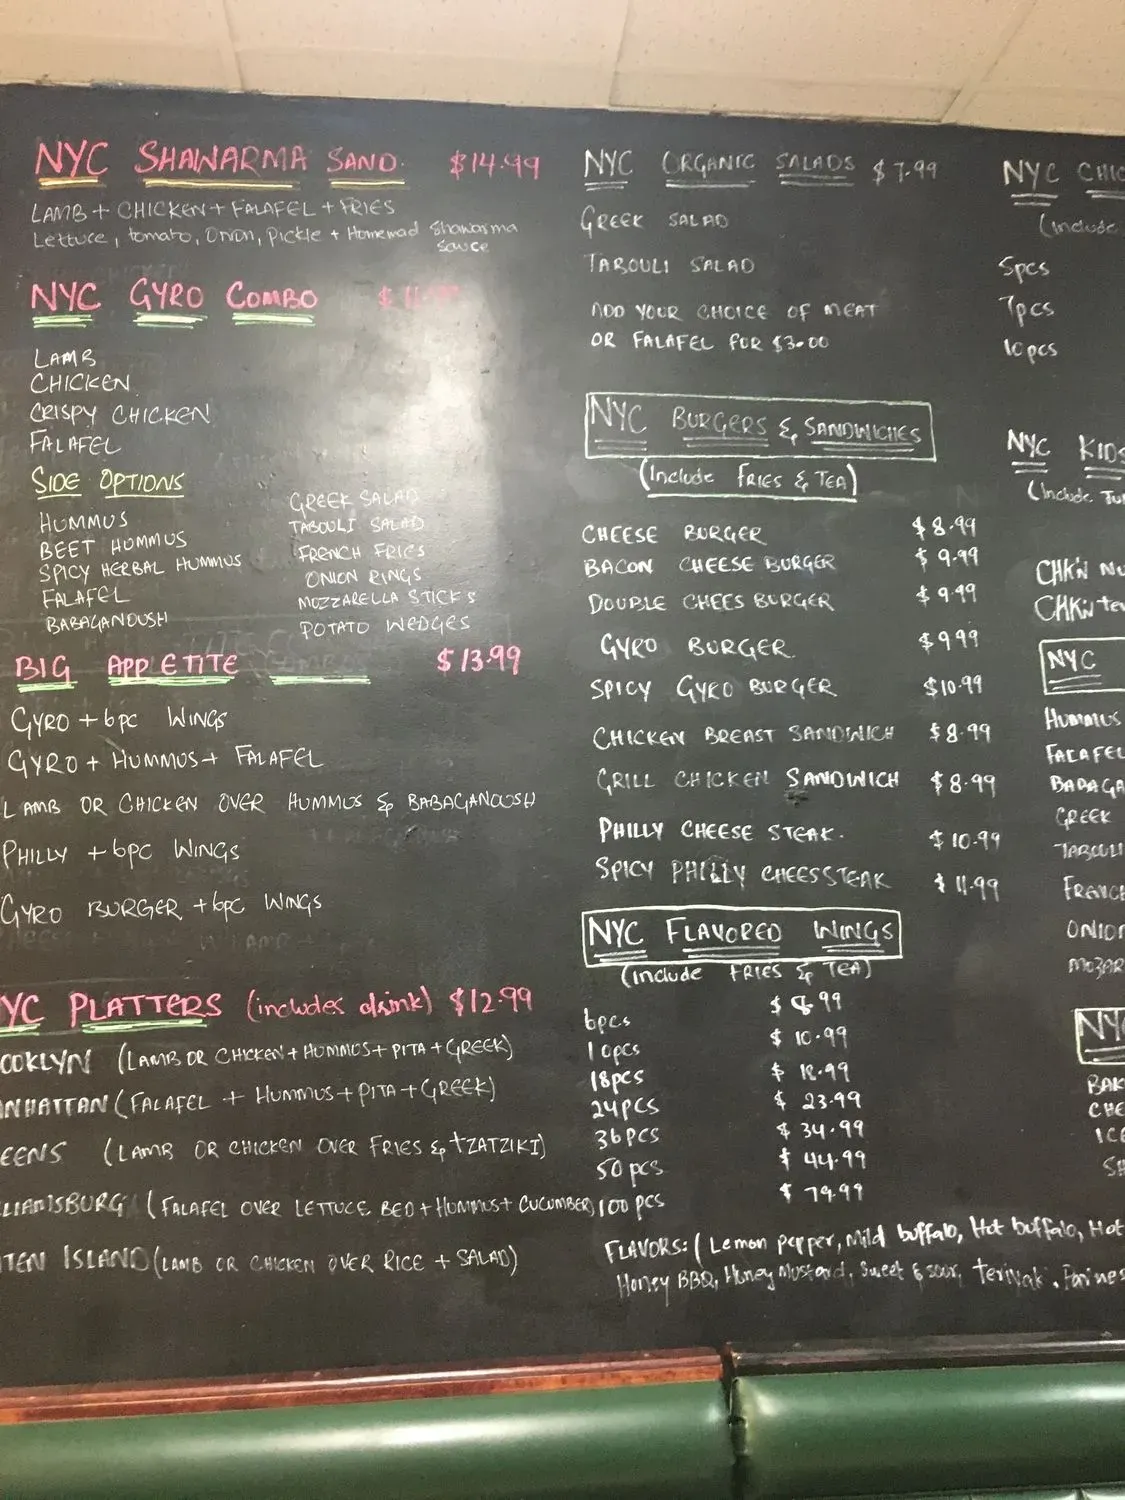 NYC SHAWARMA SAND. $14.99
LAMB + CHICKEN + FALAFEL + FRIES
Lettuce, tomato, Onion, Pickle + Homemad Shawarma
sauce
NYC GYRO COMBO
LAMB
CHICKEN
CRISPY CHICKEN
FALAFEL
SIDE OPTIONS
HUMMUS
BEET HUMMUS
SPICY HERBAL HUMMUS
FALAFEL
BABAGANOUSH
GREEK SALAD
TABOULI SALAD
FRENCH FRIES
ONION RINGS
MOZZARELLA STICKS
POTATO WEDGES
BIG APPETITE $13.99
GYRO + 6pc WINGS
GYRO + HUMMUS + FALAFEL
LAMB OR CHICKEN OVER HUMMUS & BABAGANOUSH
PHILLY + 6pc WINGS
GYRO BURGER + 6pc WINGS
YC PLATTERS (includes drink) $12.99
OOKLYN (LAMB OR CHICKEN + HUMMUS + PITA + GREEK)
NHATTAN (FALAFEL + HUMMUS + PITA + GREEK)
EENS (LAMB OR CHICKEN OVER FRIES & TZATZIKI)
LLIAMSBURG (FALAFEL OVER LETTUCE BED + HUMMUS + CUCUMBER)
TEN ISLAND (LAMB OR CHICKEN OVER RICE + SALAD)
NYC ORGANIC SALADS $7.99
GREEK SALAD
TABOULI SALAD
ADD YOUR CHOICE OF MEAT
OR FALAFEL FOR $3.00
NYC BURGERS & SANDWICHES
(Include FRIES & TEA)
CHEESE BURGER $8.99
BACON CHEESE BURGER $9.99
DOUBLE CHEES BURGER $9.99
GYRO BURGER $9.99
SPICY GYRO BURGER $10.99
CHICKEN BREAST SANDWICH $8.99
GRILL CHICKEN SANDWICH $8.99
PHILLY CHEESE STEAK. $10.99
SPICY PHILLY CHEESSTEAK $11.99
NYC FLAVORED WINGS
(include FRIES & TEA)
6pcs $8.99
10pcs $10.99
18pcs $18.99
24pcs $23.99
36pcs $34.99
50pcs $44.99
100pcs $79.99
FLAVORS: (Lemon pepper, Mild buffalo, Hot buffalo, Hot
Honey BBQ, Honey Mustard, Sweet & sour, Teriyak, Parmes
NYC CHIC
(Include
5pcs
7pcs
10pcs
NYC KIDS
(Include Ju
CHK'N NU
CHK'N te
NYC
HUMMUS
FALAFEL
BABAGA
GREEK
TABOULI
FRENCH
ONION
MOZAR
NY
BAK
CHE
ICE